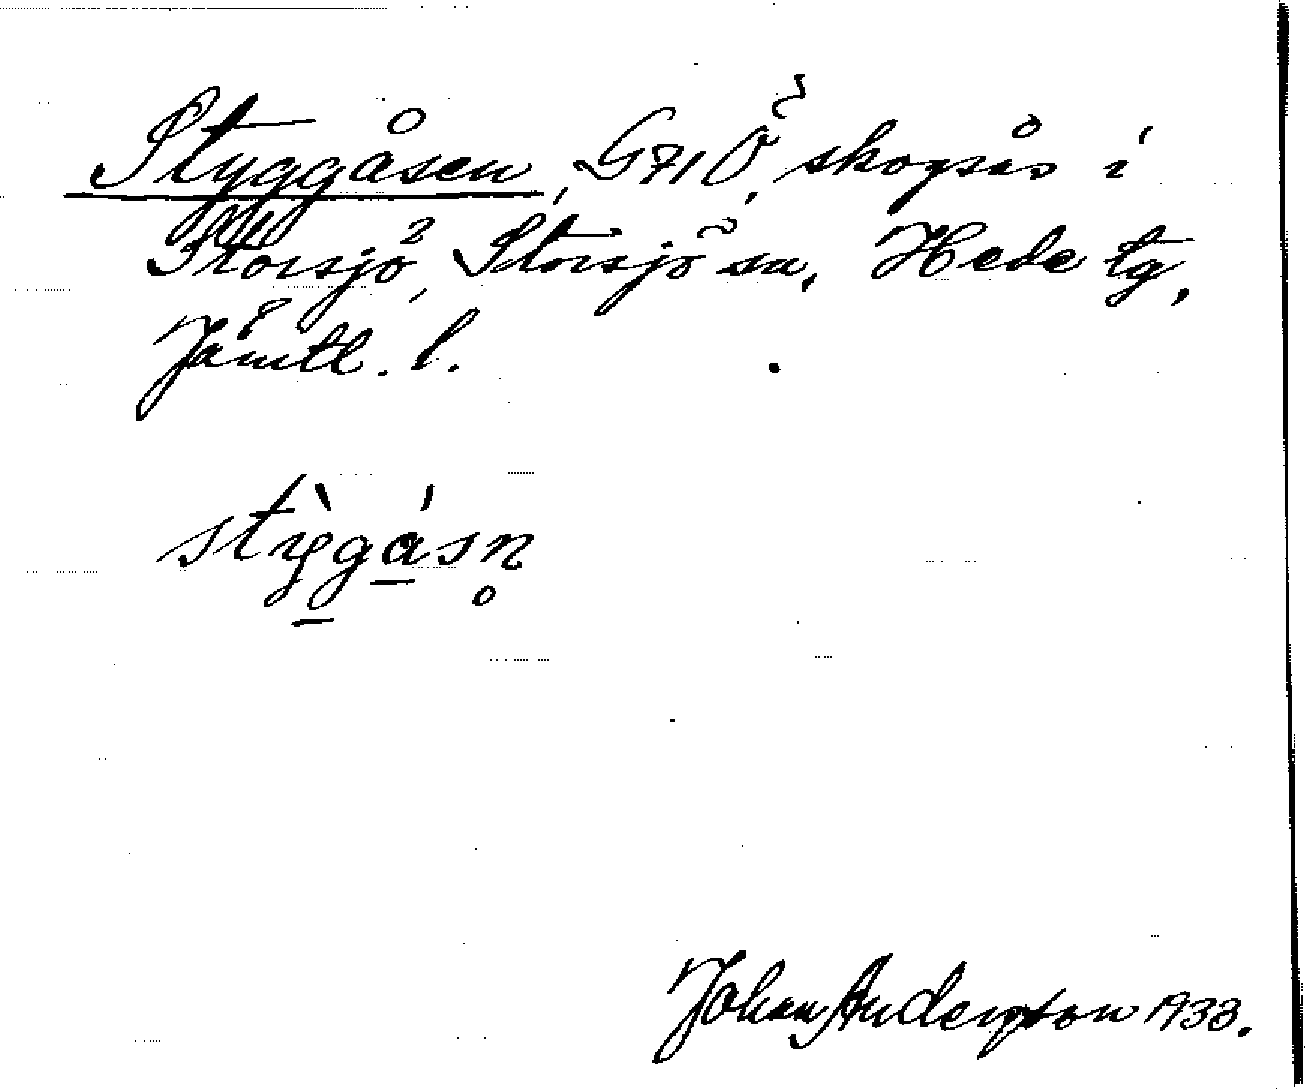 Styggåsen, G71Ö, skogsås i
Storsjö, Storsjö sn, Hede tg,
Jämtl. l.
stỳgásn̥
Johan Anderson 1933.